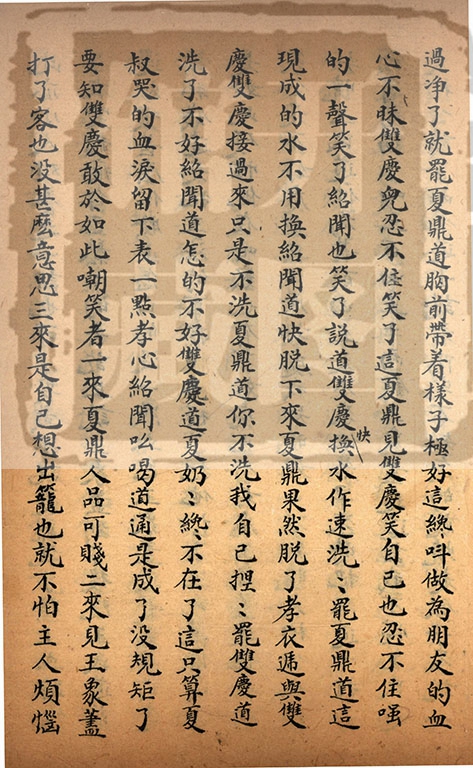 過净了就罷夏鼎道胸前帶着樣子極好這纔呌做為朋友的血
心不昧雙慶兒忍不住笑了這夏鼎見雙慶笑自己也忍不住嗤
的一聲笑了紹聞也笑了說道雙慶快換水作速洗〻罷夏鼎道這
現成的水不用換紹聞道快脱下來夏鼎果然脱了孝衣遞與雙
慶雙慶接過來只是不洗夏鼎道你不洗我自己捏〻罷雙慶道
洗了不好紹聞道怎的不好雙慶道夏奶〻纔不在了這只算夏
叔哭的血淚留下表一點孝心紹聞吆喝道通是成了没規矩了
要知雙慶敢於如此嘲笑者一來夏鼎人品可賤二來見王象藎
打了客也没甚麽意思三來是自己想出籠也就不怕主人煩惱